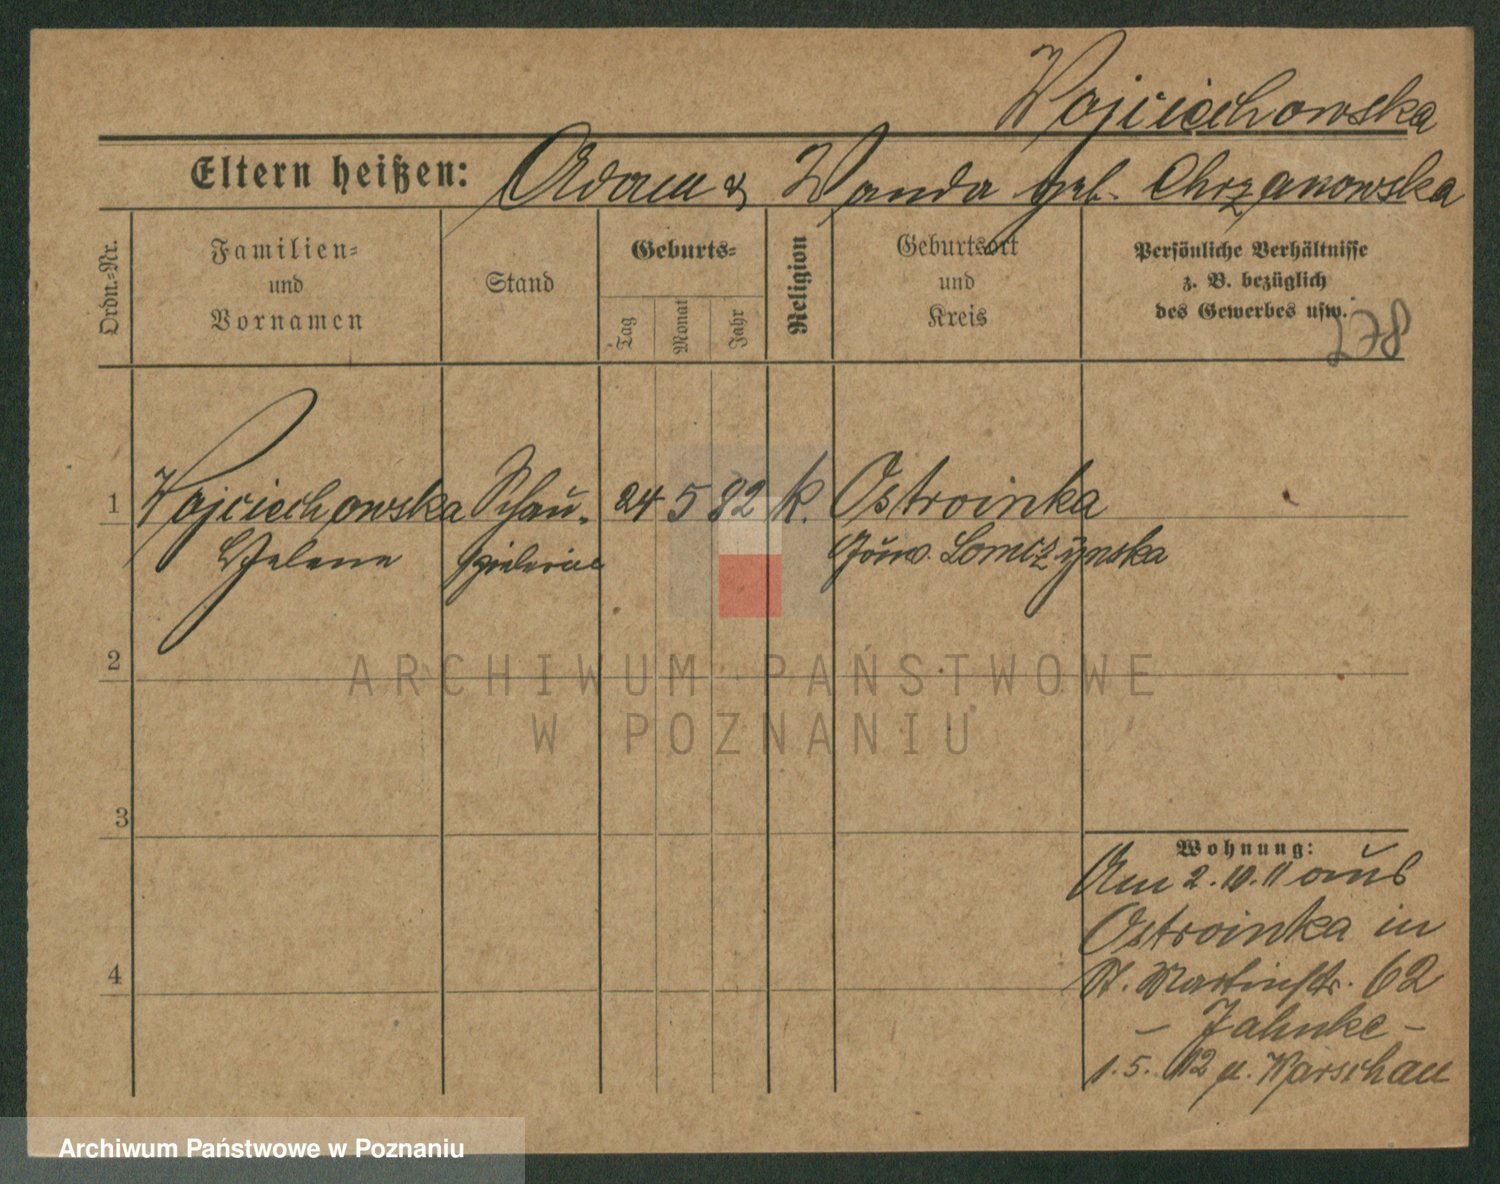 Wojciechowska
Eltern heißen: Adam & Wanda geb. Chrzanowska
Ordn.-Nr.
Familien-
und
Vornamen
Stand
Geburts-
Tag
Monat
Jahr
Religion
Geburtsort
und
Kreis
Persönliche Verhältnisse
z. B. bezüglich
des Gewerbes usw.
278
1 Wojciechowska Schau- 24 5 82 k. Ostroinka
Helene spielerin Gouv. Lomczynska
2
ARCHIWUM PAŃSTWOWE
W POZNANIU
3
Wohnung:
Am 2.10.11 aus
Ostroinka in
St. Martinstr. 62
– Jahnke –
4
1.5.12 n. Warschau
Archiwum Państwowe w Poznaniu